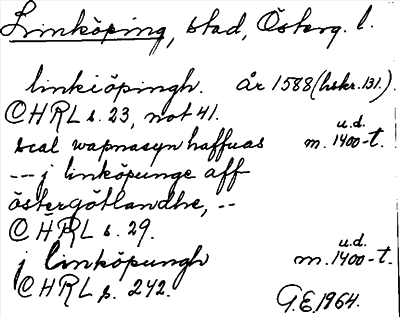 Linköping, stad, Österg. l.
linkiöpingh. år 1588 (hskr. 131.).
CHRL s. 23, not 41.
u.d.
scal wapnasyn haffuas m. 1400-t.
--- j linköpunge aff
östergötlandhe, --
CHRL s. 29.
u.d.
j linköpungh m. 1400-t.
CHRL s. 242.
G.E. 1964.